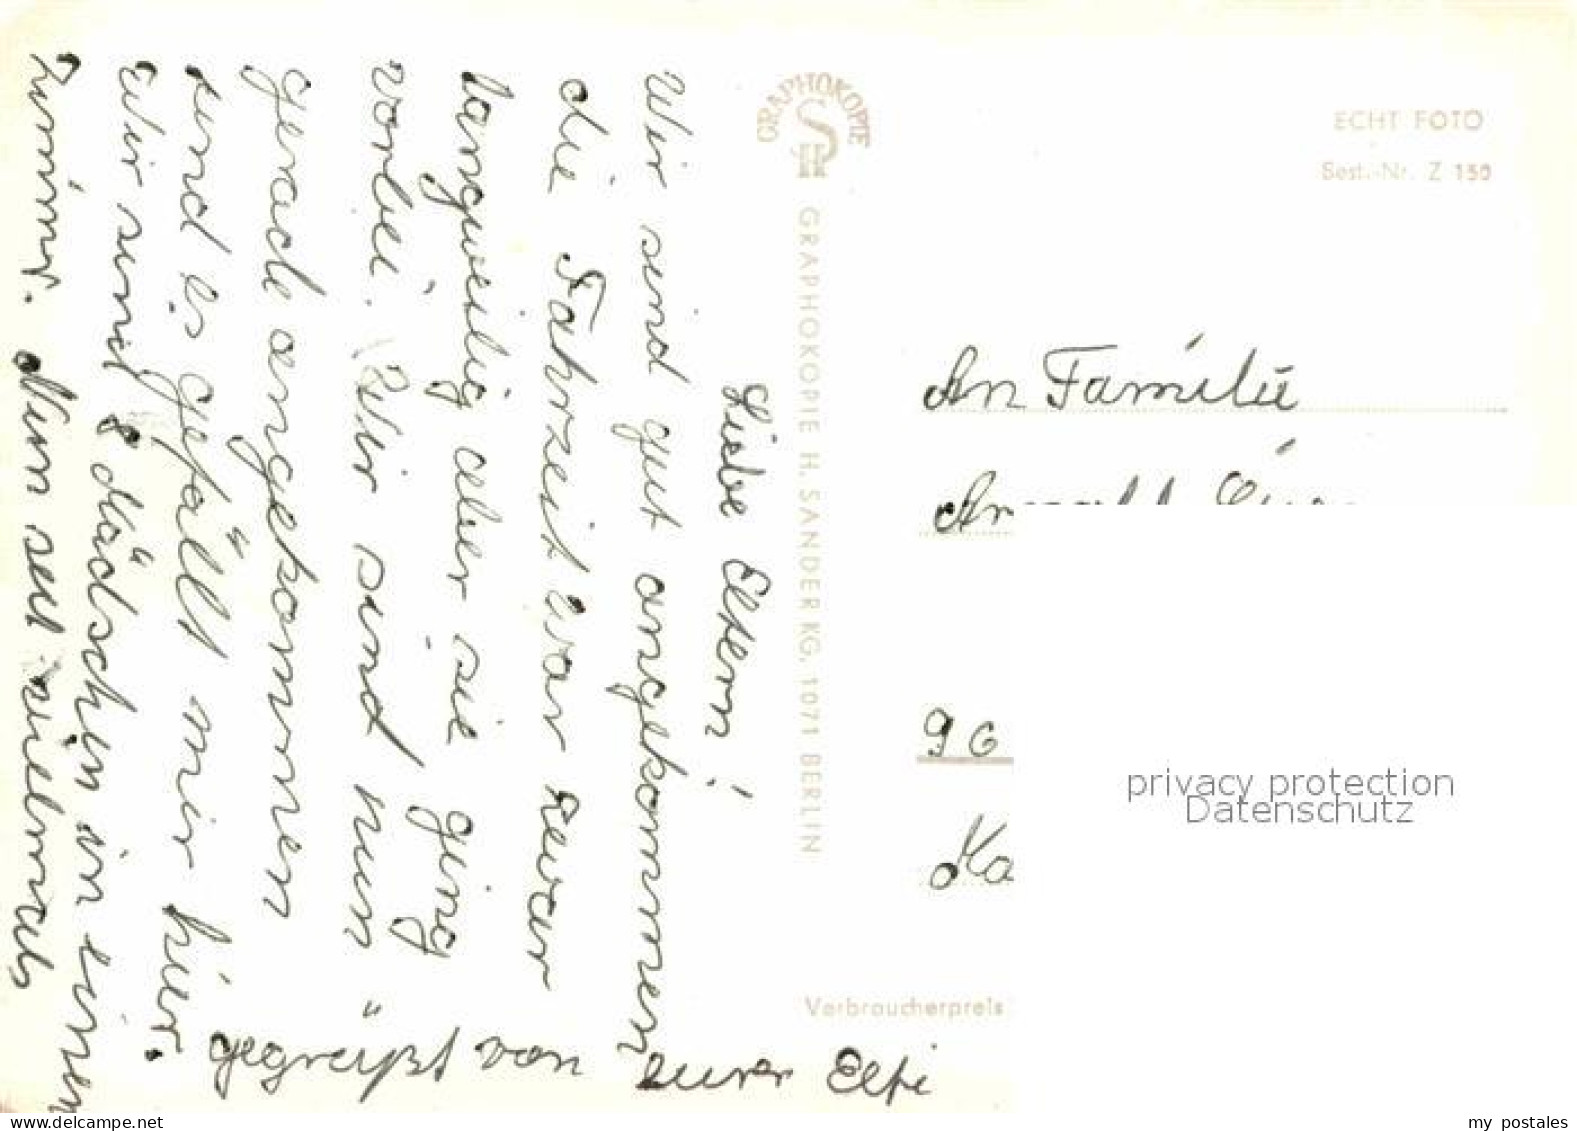 Liebe Eltern!
Wir sind gut angekommen
die Fahrzeit war zwar
langweilig aber sie ging
vorbei. Wir sind nun
gerade angekommen
und es gefällt mir hier.
Wir sind 8 Mädschen in einem
Zimmer. Nun seit vielmals
gegrüßt von eurer Elfi
GRAPHOKOPIE
GRAPHOKOPIE H. SANDER KG, 1071 BERLIN
ECHT FOTO
Best.-Nr. Z 150
An Familie
90
Ma
Verbraucherpreis
privacy protection
Datenschutz
www.delcampe.net
my_postales